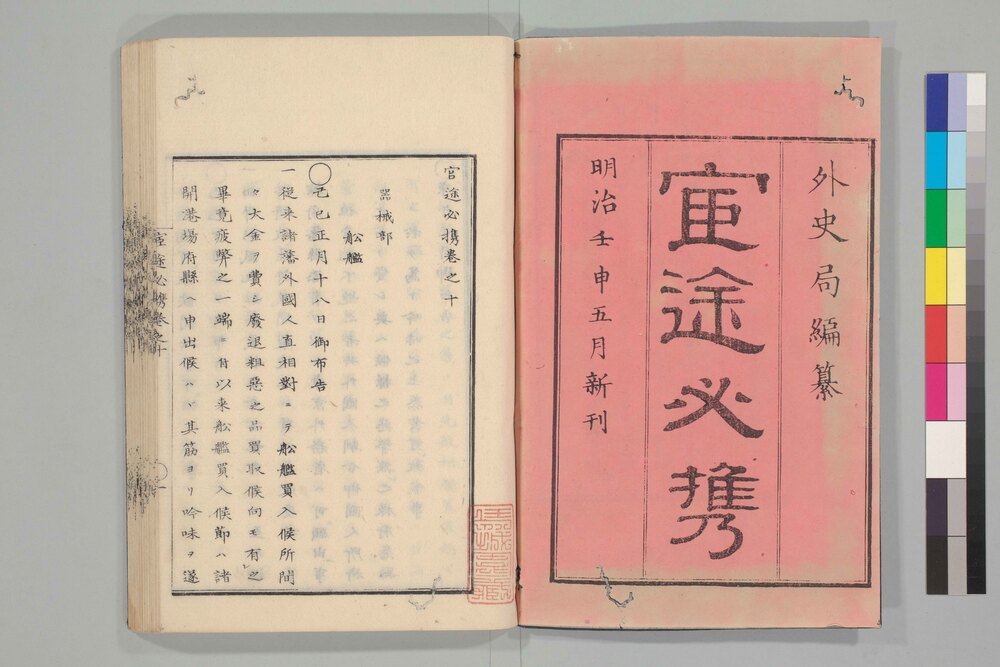 外史局編纂
宦途必携
明治壬申五月新刊
官途必携巻之十
器械部
舩艦
◯己巳正月十八日御布告
一従来諸藩外國人直相對ニテ舩艦買入候所間
々大金ヲ費シ廢退粗惡之品買取候向モ有之
畢竟疲弊之一端ニ付以来舩艦買入候節ハ諸
開港塲府縣ヘ申出候ハヽ其筋ヨリ吟味ヲ遂
官途必携巻之十
一